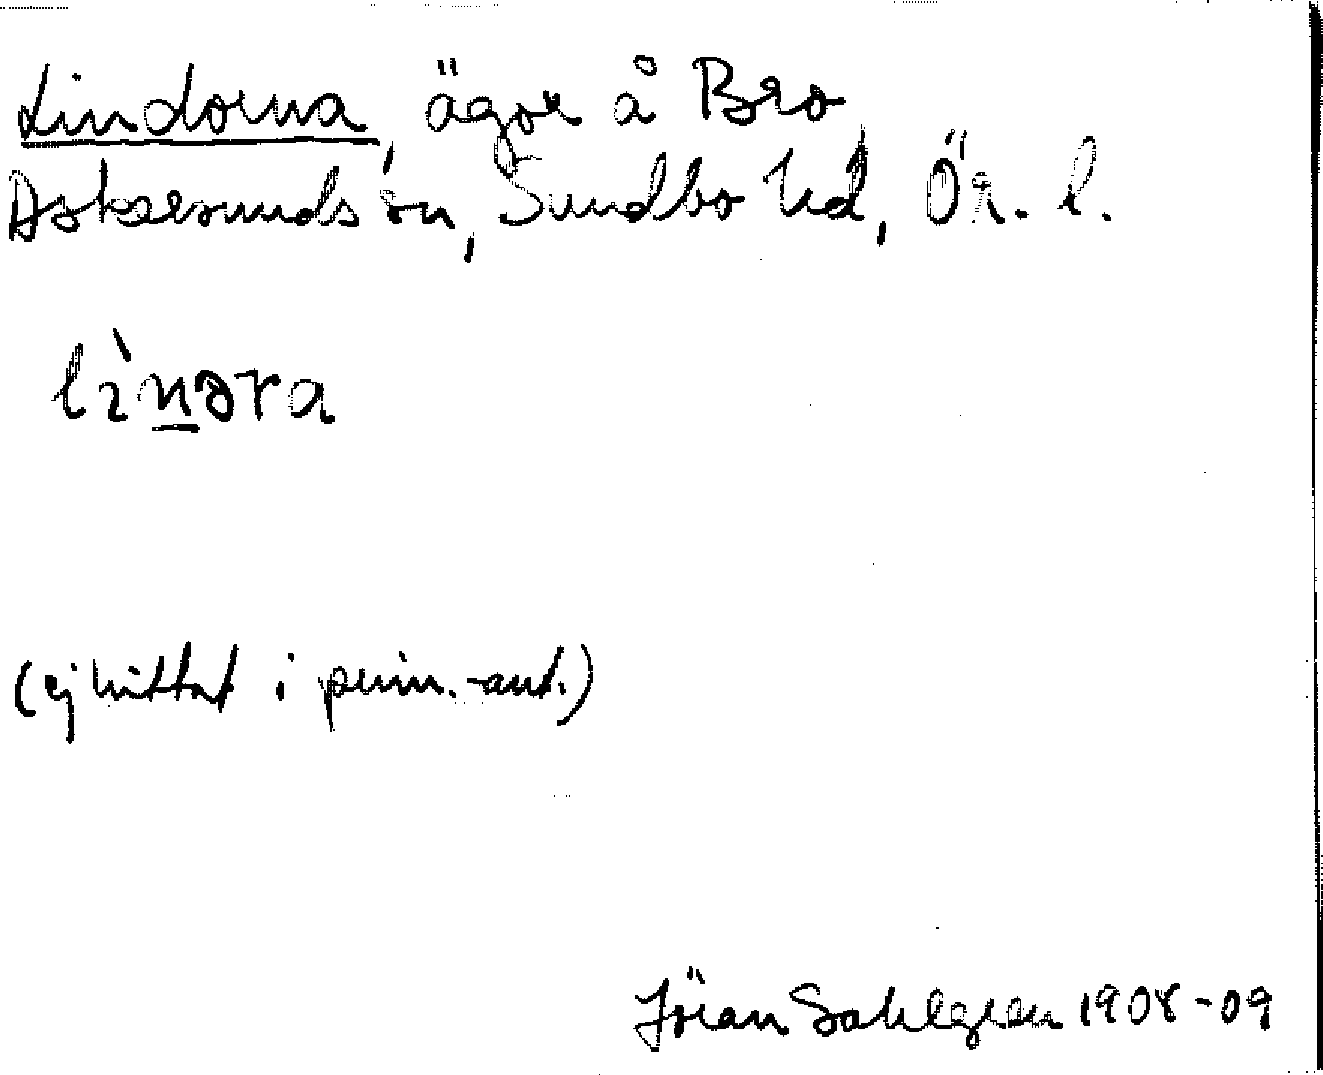 Lindorna, ägor å Bro
Askersunds sn, Sundbo hd, Ör. l.
lìnəra
(ej hittat i prim.-ant.)
Jöran Sahlgren 1908-09